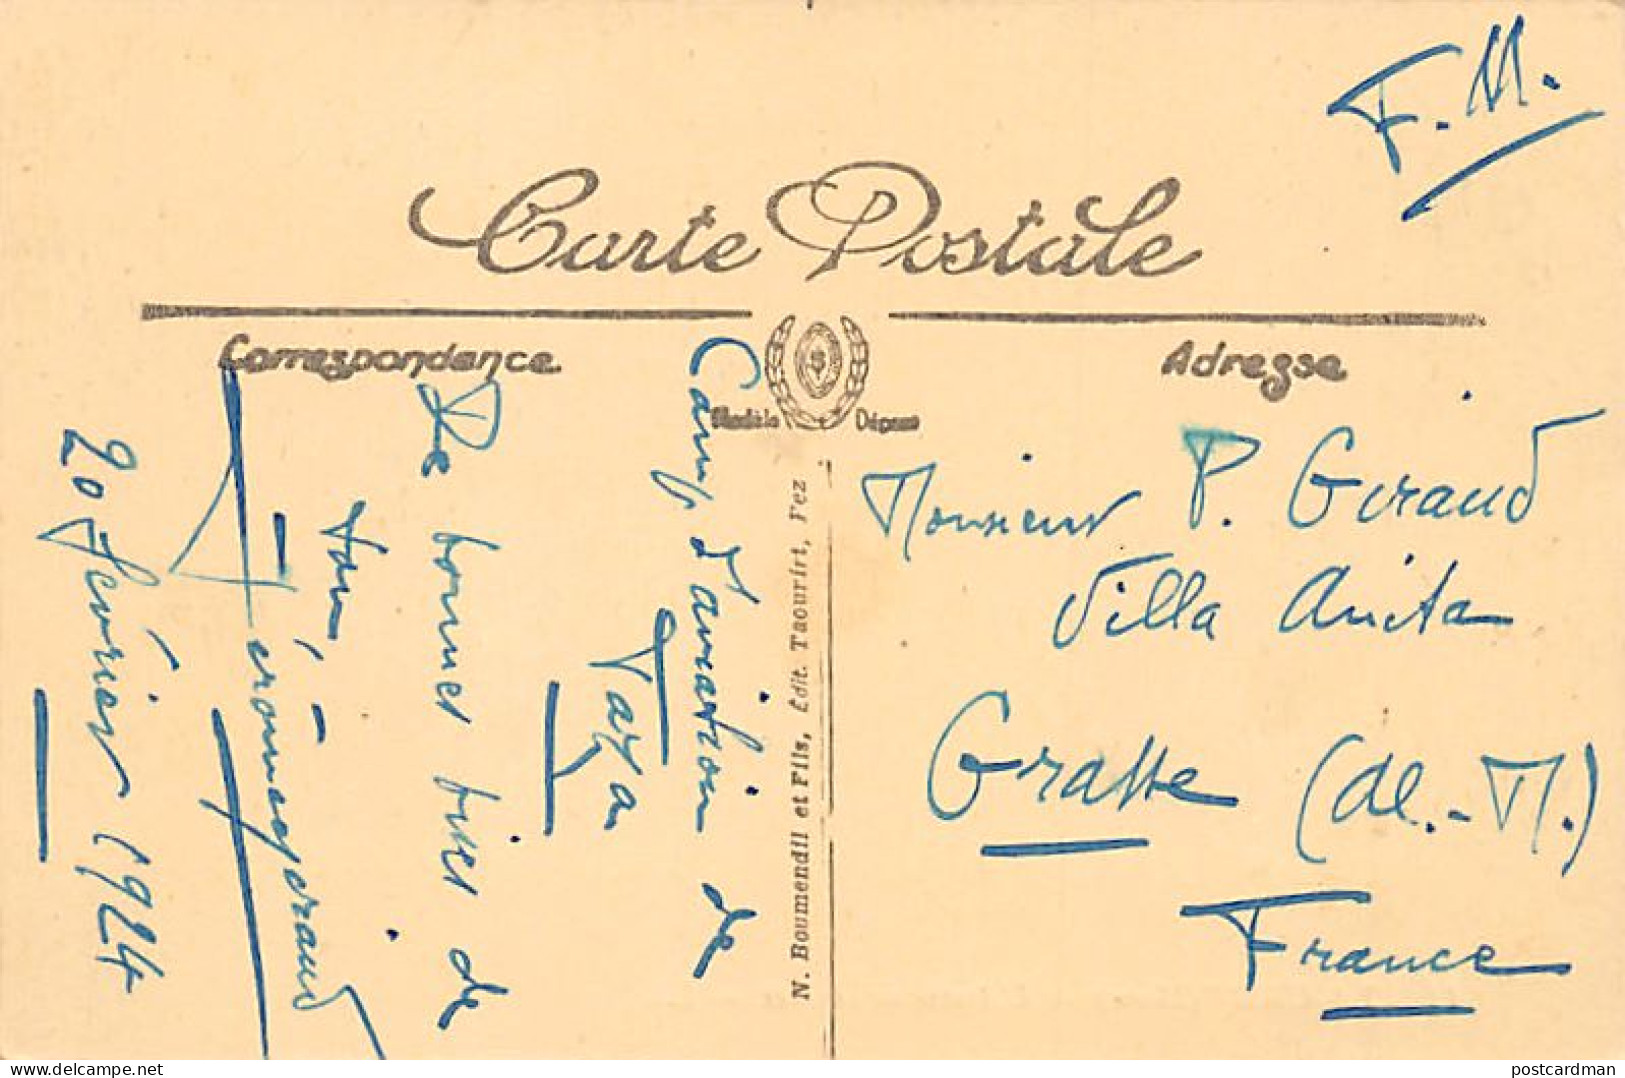 F.M.
Carte Postale
Correspondance
Adresse
Modèle Déposé
Camp d'aviation de
Taza
De bonnes bises de
20 Février 1924
N. Boumendil et Fils, Édit. Taourirt, Fez
Monsieur P. Giraud
Villa Anita
Grasse (Al.-M.)
France
delcampe.net
postcardman